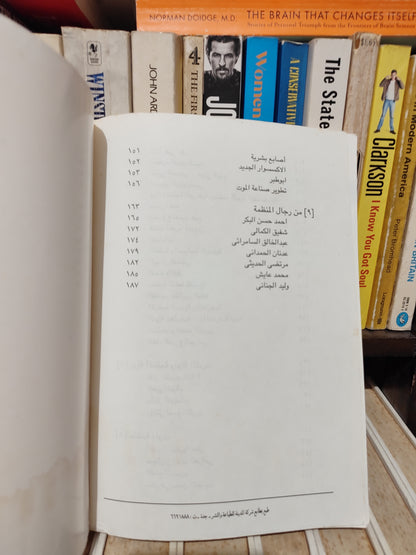 NORMAN DOIDGE, M.D. THE BRAIN THAT CHANGES ITSELF
Stories of Personal Triumph from the Frontiers of Brain Science
WINST
JOHN ARD
4
THE FIRS
JO
Women
A CONSERVATIVE
The State
Clarkson
I Know You Got Soul
Modern America
BRITAIN
أصابع بشرية ١٥١
الاكسسوار الجديد ١٥٢
ابوطبر ١٥٣
تطوير صناعة الموت ١٥٦
[٩] من رجال المنظمة ١٦٣
احمد حسن البكر ١٦٥
شفيق الكمالي ١٧٢
عبدالخالق السامرائي ١٧٤
عدنان الحمداني ١٧٩
مرتضى الحديثي ١٨٢
محمد عايش ١٨٥
وليد الجنابي ١٨٧
طبع بمطابع شركة المدينة للطباعة والنشر - جدة - ت / ٦٣٩٦٨٨٨